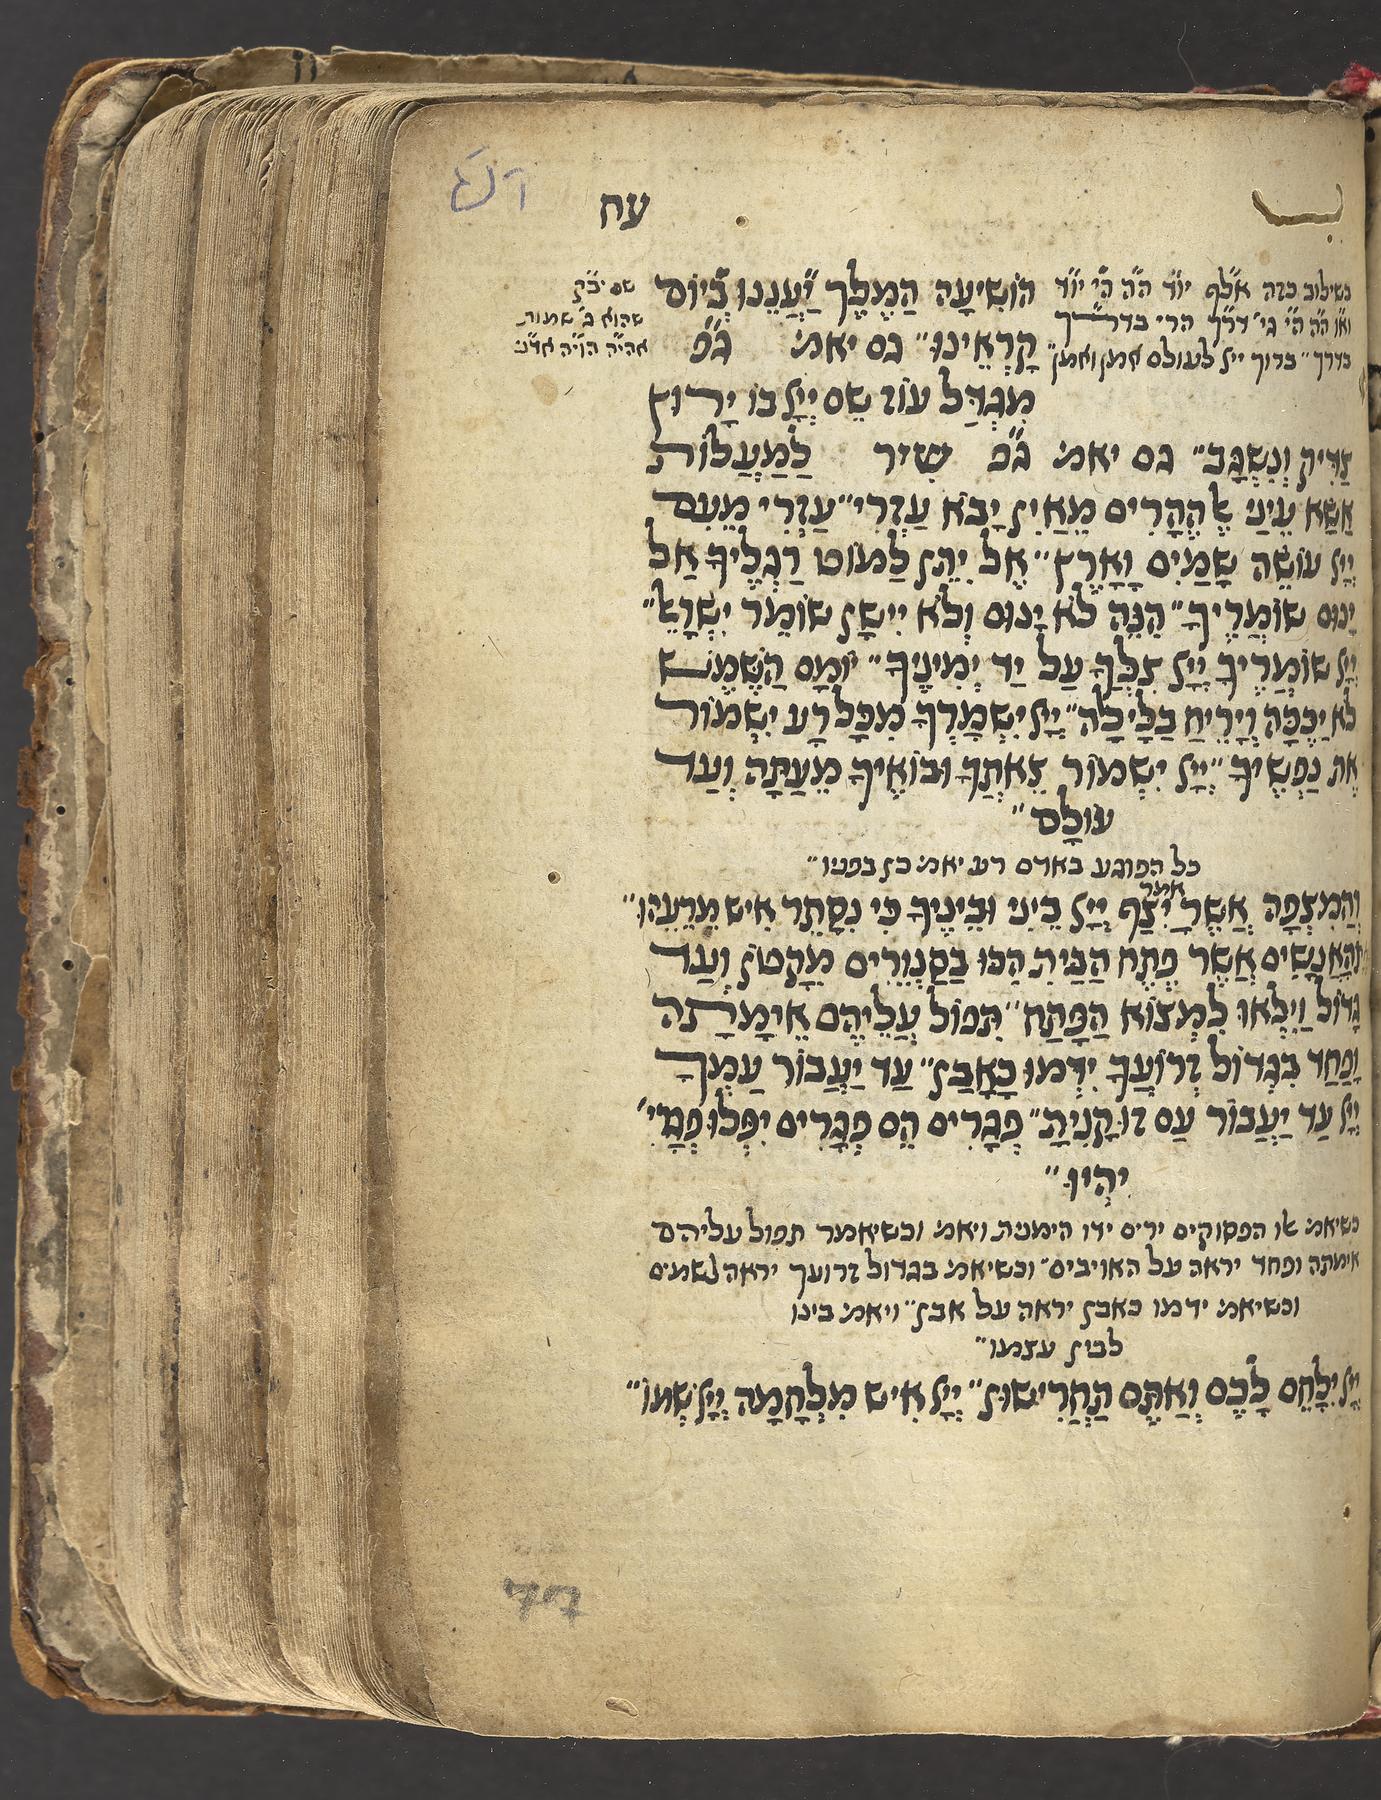 עח
כשילוב כזה אל״ף יו״ד ה״ה ה״י יו״ד
וא״ו ה״ה ה״י גי׳ דר״ך הרי בדר״ך
בדרך״ ברוך ייל לעולם אמן ואמן״
שם יב״ק
שהוא ג׳ שמות
אהי״ה הוי״ה אדנ״י
הוֹשִׁיעָה הַמֶּלֶךְ יַעֲנֵנוּ בְיוֹם
קָרְאֵינוּ״ גם יאמ׳ ג״פ
מִגְדַּל עוֹז שֵׁם יְיָל בּוֹ יָרוּץ
צַדִּיק וְנִשְׂגָּב״ גם יאמ׳ ג״פ שִׁיר לַמַּעֲלוֹת
אֶשָּׂא עֵינַי אֶל הֶהָרִים מֵאַיִן יָבֹא עֶזְרִי״ עֶזְרִי מֵעִם
יְיָל עוֹשֵׂה שָׁמַיִם וָאָרֶץ״ אַל יִתֵּן לַמּוֹט רַגְלֶיךָ אַל
יָנוּם שׁוֹמְרֶיךָ״ הִנֵּה לֹא יָנוּם וְלֹא יִישָׁן שׁוֹמֵר יִשְׂרָאֵל״
יְיָל שׁוֹמְרֶיךָ יְיָל צִלְּךָ עַל יַד יְמִינֶיךָ״ יוֹמָם הַשֶּׁמֶשׁ
לֹא יַכֶּכָּה וְיָרֵיחַ בַּלָּיְלָה״ יְיָל יִשְׁמָרְךָ מִכָּל רָע יִשְׁמוֹר
אֶת נַפְשֶׁיךָ״ יְיָל יִשְׁמוֹר צֵאתְךָ וּבוֹאֶיךָ מֵעַתָּה וְעַד
עוֹלָם״
כל הפוגע באדם רע יאמ׳ כן בפניו״
וְהַמִּצְפָּה אֲשֶׁר אמר יִצֶף יְיָל בֵּינִי וּבֵינֶיךָ כִּי נִסָּתֵר אִישׁ מֵרֵעֵהוּ״
וְהָאֲנָשִׁים אֲשֶׁר פֶּתַח הַבַּיִת הִכּוּ בַּסַּנְוֵרִים מִקָּטוֹן וְעַד
גָּדוֹל וַיִּלְאוּ לִמְצוֹא הַפָּתַח״ תִּפּוֹל עֲלֵיהֶם אֵימָתָה
וָפַחַד בִּגְדוֹל זְרוֹעֲךָ יִדְּמוּ כָּאָבֶן״ עַד יַעֲבוֹר עַמְּךָ
יְיָל עַד יַעֲבוֹר עַם זוּ קָנִיתָ״ פְּגָרִים הֵם פְּגָרִים יִפְּלוּ פְּגָרִי׳
יִהְיוּ״
כשיאמ׳ אלו הפסוקים ירים ידו הימנית ויאמ׳ וכשיאמר תפול עליהם
אימתה ופחד יראה על האויבים״ וכשיאמ׳ בגדול זרועך יראה לשמים
וכשיאמ׳ ידמו כאבן יראה על אבן״ ויאמ׳ בינו
לבין עצמו״
יְיָל יִלָּחֵם לָכֶם וְאַתֶּם תַּחֲרִישׁוּן״ יְיָל אִישׁ מִלְחָמָה יְיָל שְׁמוֹ״